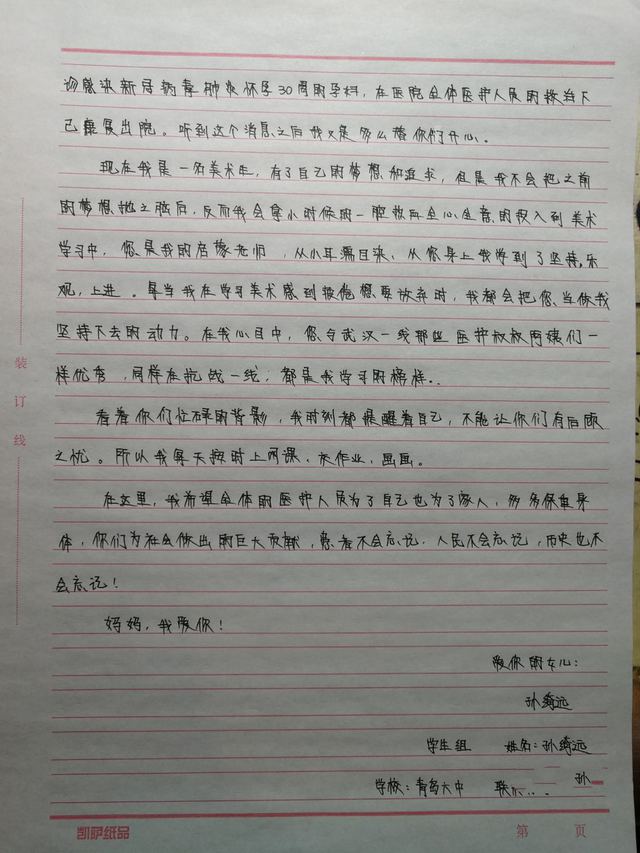 诊感染新冠病毒肺炎怀孕30周的孕妇，在医院全体医护人员的救治下
已康复出院。听到这个消息之后我又是多么替你们开心。
现在我是一名美术生，有了自己的梦想和追求，但是我不会把之前
的梦想抛之脑后，反而我会拿小时候的一腔热血全心全意的投入到美术
学习中，您是我的启蒙老师，从小耳濡目染，从您身上我学到了坚持，乐
观，上进。每当我在学习美术感到疲倦想要放弃时，我都会把您当做我
坚持下去的动力。在我心目中，您与武汉一线那些医护叔叔阿姨们一
样优秀，同样在抗战一线；都是我学习的榜样..
看着你们忙碌的背影，我时刻都提醒着自己，不能让你们有后顾
之忧。所以我每天按时上网课，交作业，画画。
在这里，我希望全体的医护人员为了自己也为了家人，多多保重身
体，你们为社会做出的巨大贡献，患者不会忘记，人民不会忘记，历史也不
会忘记！
妈妈，我爱你！
爱你的女儿：
孙绮远
学生组 姓名：孙绮远
学校：青岛六中 联 孙
装订线
凯萨纸品 第 页